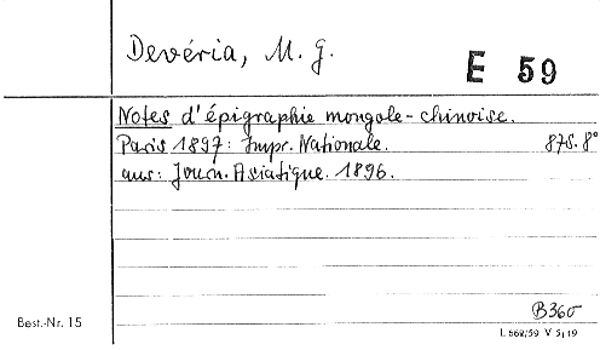 Devéria, M. G.
E 59
Notes d'épigraphie mongole-chinoise.
Paris 1897: Impr. Nationale. 87S. 8°
aus: Journ. Asiatique. 1896.
B360
Best.-Nr. 15
L 568/59 V 5/19